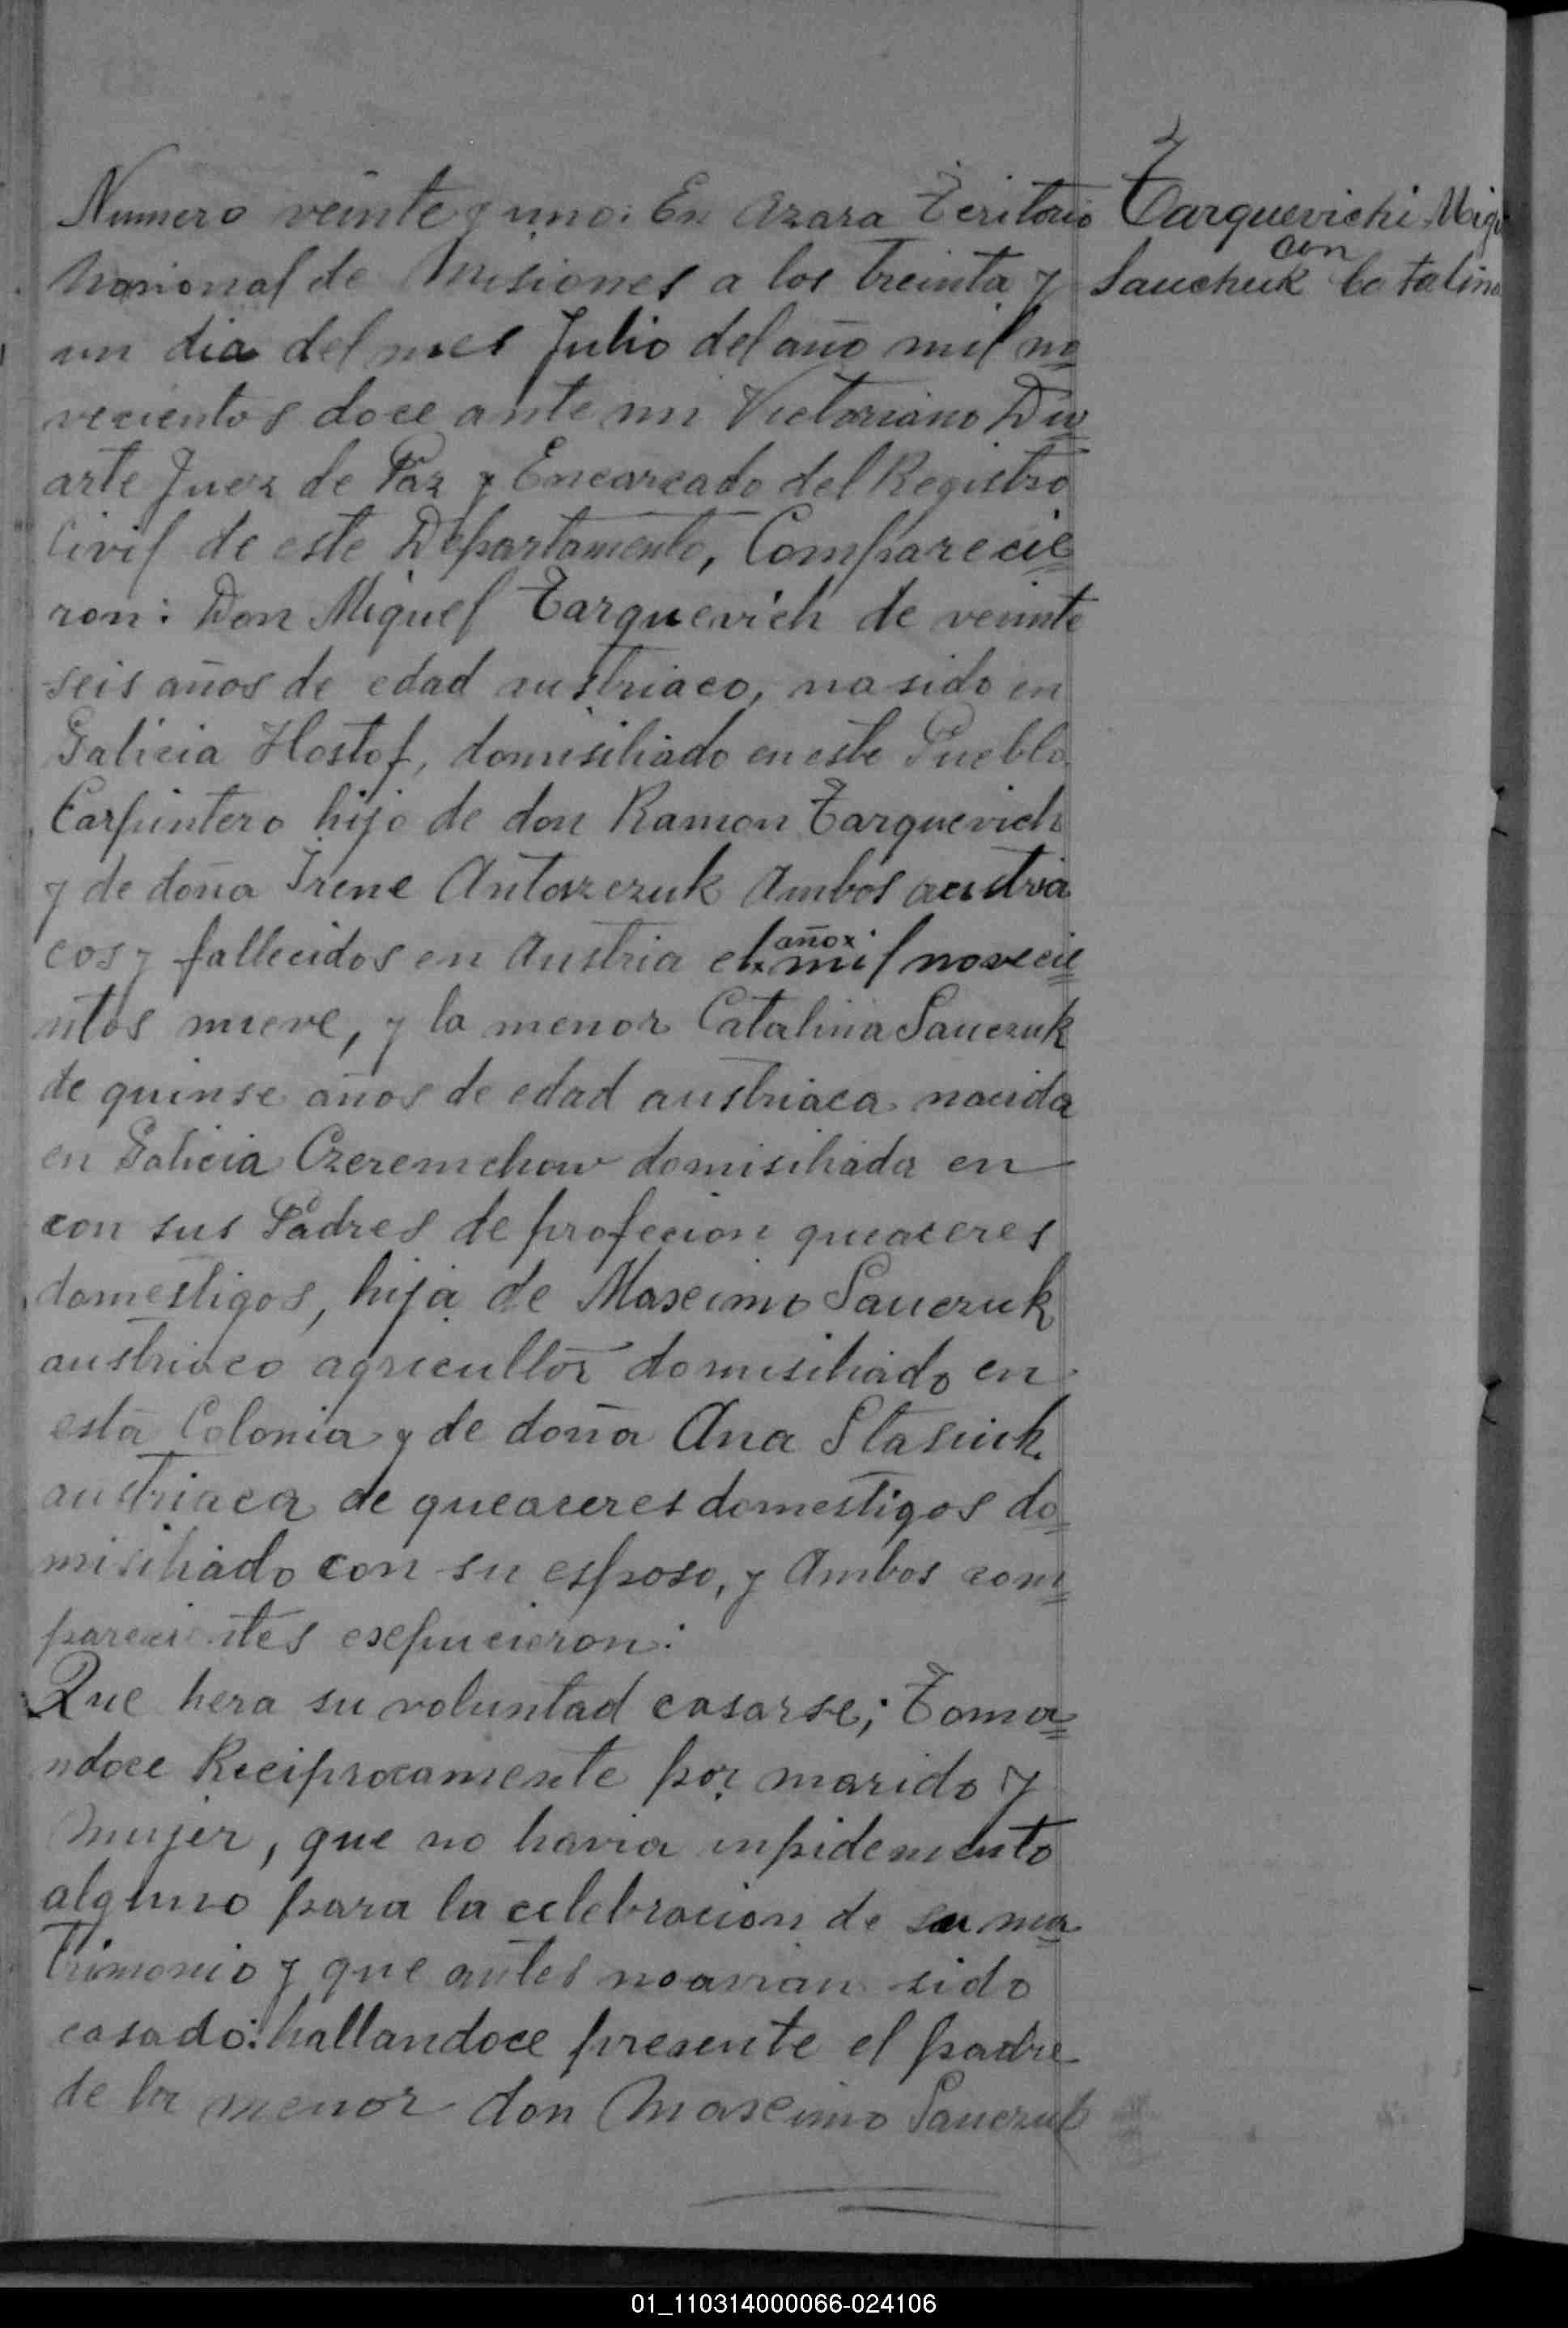 Numero veinte y uno: En Azara Teritorio
Nasional de Misiones a los treinta y
un dia del mes Julio del año mil no
vecientos doce ante mi Victoriano Du
arte Juez de Paz y Encarcado del Registro
Civil de este Departamento, Comparecie
ron: Don Miguel Tarquevich de veinte
seis años de edad austriaco, nasido en
Galicia Hostof, domisiliado en este Pueblo
Carpintero hijo de don Ramon Tarquevich
y de doña Irene Antoszczuk Ambos austria
cos y fallecidos en Austria el año mil novecie
ntos nueve, y la menor Catalina Sauczuk
de quinse años de edad austriaca nacida
en Galicia Czeremchow domisiliada en
con sus Padres de profecion queaceres
domestigos, hija de Maseimo Sauczuk
austriaco agricultor domisiliado en
esta Colonia y de doña Ana Stasiuk
austriaca de queaceres domestigos do
misiliado con su esposo, y Ambos com
parecientes esepucieron:
Que hera su voluntad casarse; Toma
ndoce Reciprocamente por marido y
Mujer, que no havia inpidemento
alguno para la celebracion de su ma
trimonio y que antes no avian sido
casado: hallandoce presente el padre
de la menor don Maseimo Sauczuk
Tarquevichi Migu
con
Sauchuk Catalina
01_110314000066-024106